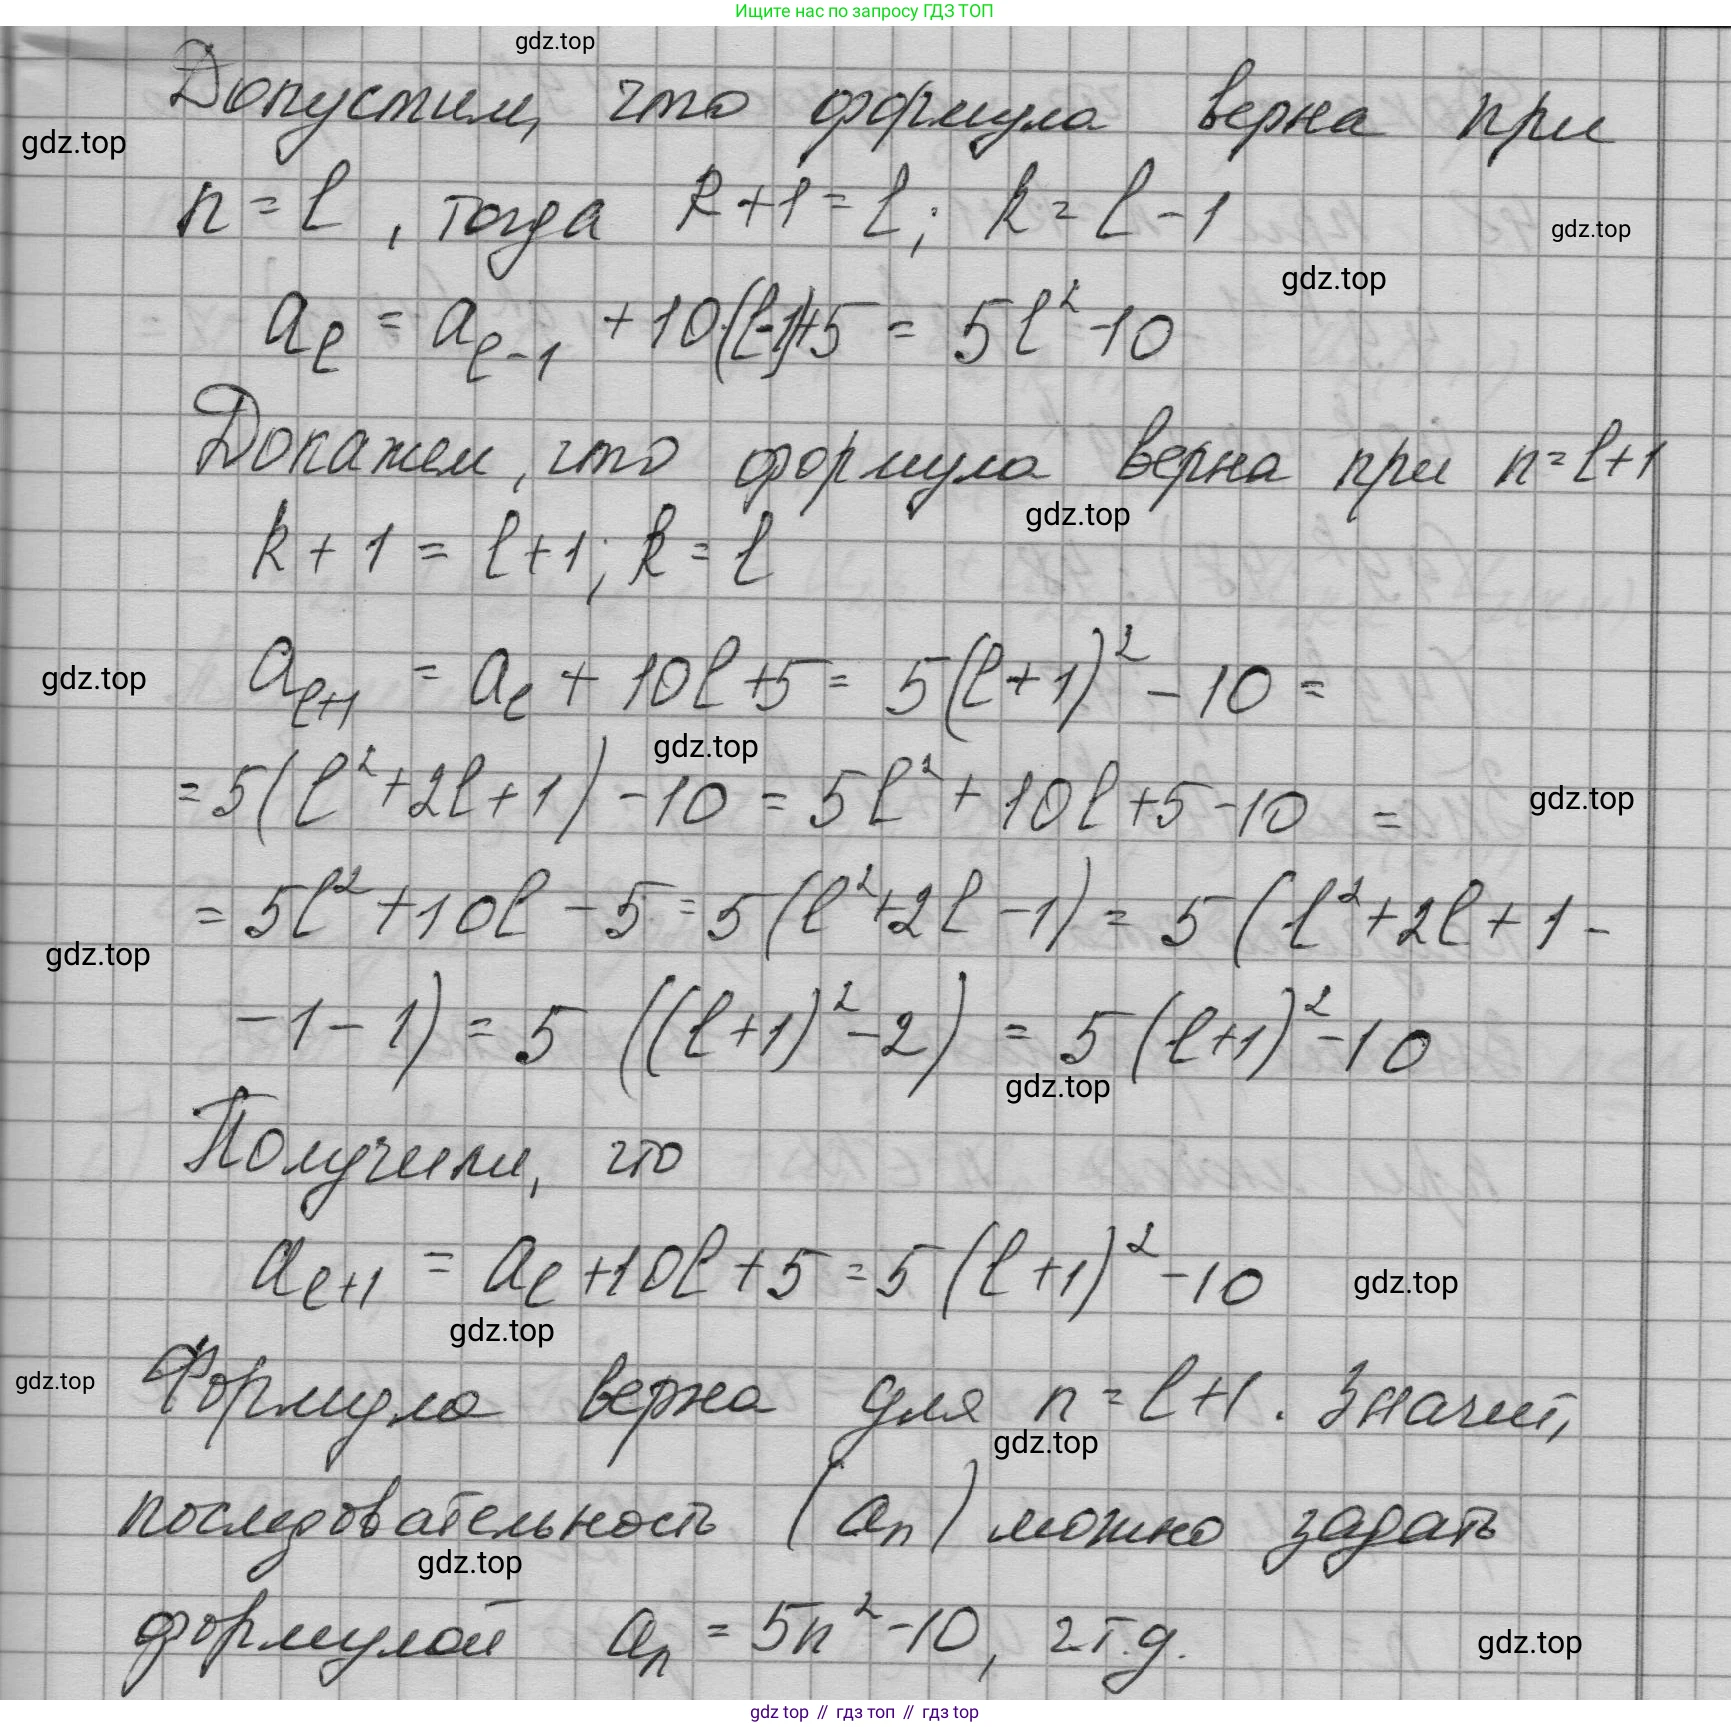 Ищите нас по запросу ГДЗ ТОП
gdz.top
Допустим, что формула верна при
gdz.top
n = l, тогда k+1 = l; k = l-1
gdz.top
gdz.top
a_l = a_{l-1} + 10(l-1)+5 = 5l² - 10
Докажем, что формула верна при n = l+1
gdz.top
k + 1 = l+1; k = l
gdz.top
a_{l+1} = a_l + 10l + 5 = 5(l+1)² - 10 =
gdz.top
= 5(l² + 2l + 1) - 10 = 5l² + 10l + 5 - 10 =
gdz.top
= 5l² + 10l - 5 = 5(l² + 2l - 1) = 5(l² + 2l + 1 -
gdz.top
- 1 - 1) = 5((l+1)² - 2) = 5(l+1)² - 10
gdz.top
Получили, что
a_{l+1} = a_l + 10l + 5 = 5(l+1)² - 10
gdz.top
gdz.top
gdz.top
Формула верна для n = l+1. Значит,
gdz.top
последовательность (a_n) можно задать
gdz.top
формулой a_n = 5n² - 10, ч.т.д.
gdz.top
gdz top // гдз топ // gdz top